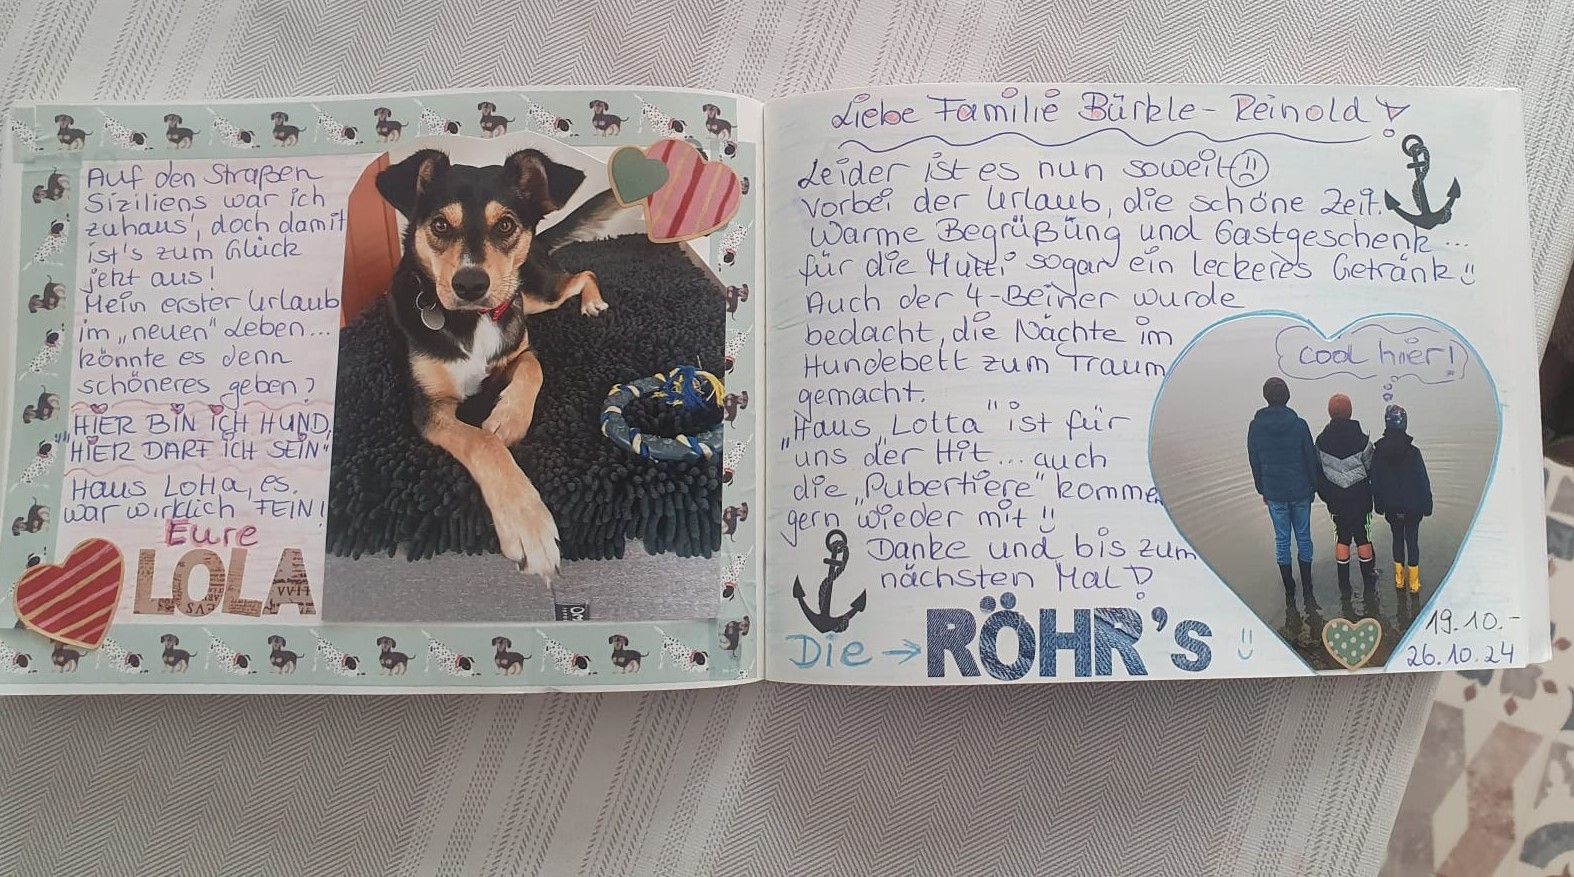 Auf den Straßen
Siziliens war ich
zuhaus', doch damit
ist's zum Glück
jetzt aus!
Mein erster Urlaub
im „neuen" Leben...
könnte es denn
schöneres geben?
"HIER BIN ICH HUND,
HIER DARF ICH SEIN"
Haus Lotta, es
war wirklich FEIN!
Eure
LOLA
Liebe Familie Bürkle-Reinold!
Leider ist es nun soweit
vorbei der Urlaub, die schöne Zeit.
Warme Begrüßüng und Gastgeschenk...
für die Mutti sogar ein leckeres Getränk
Auch der 4-Beiner wurde
bedacht, die Nächte im
Hundebett zum Traum
gemacht.
„Haus Lotta" ist für
uns der Hit... auch
die „Pubertiere" kommen
gern wieder mit
Danke und bis zum
nächsten Mal!
Die → RÖHR's
cool hier!
19.10.-
26.10.24